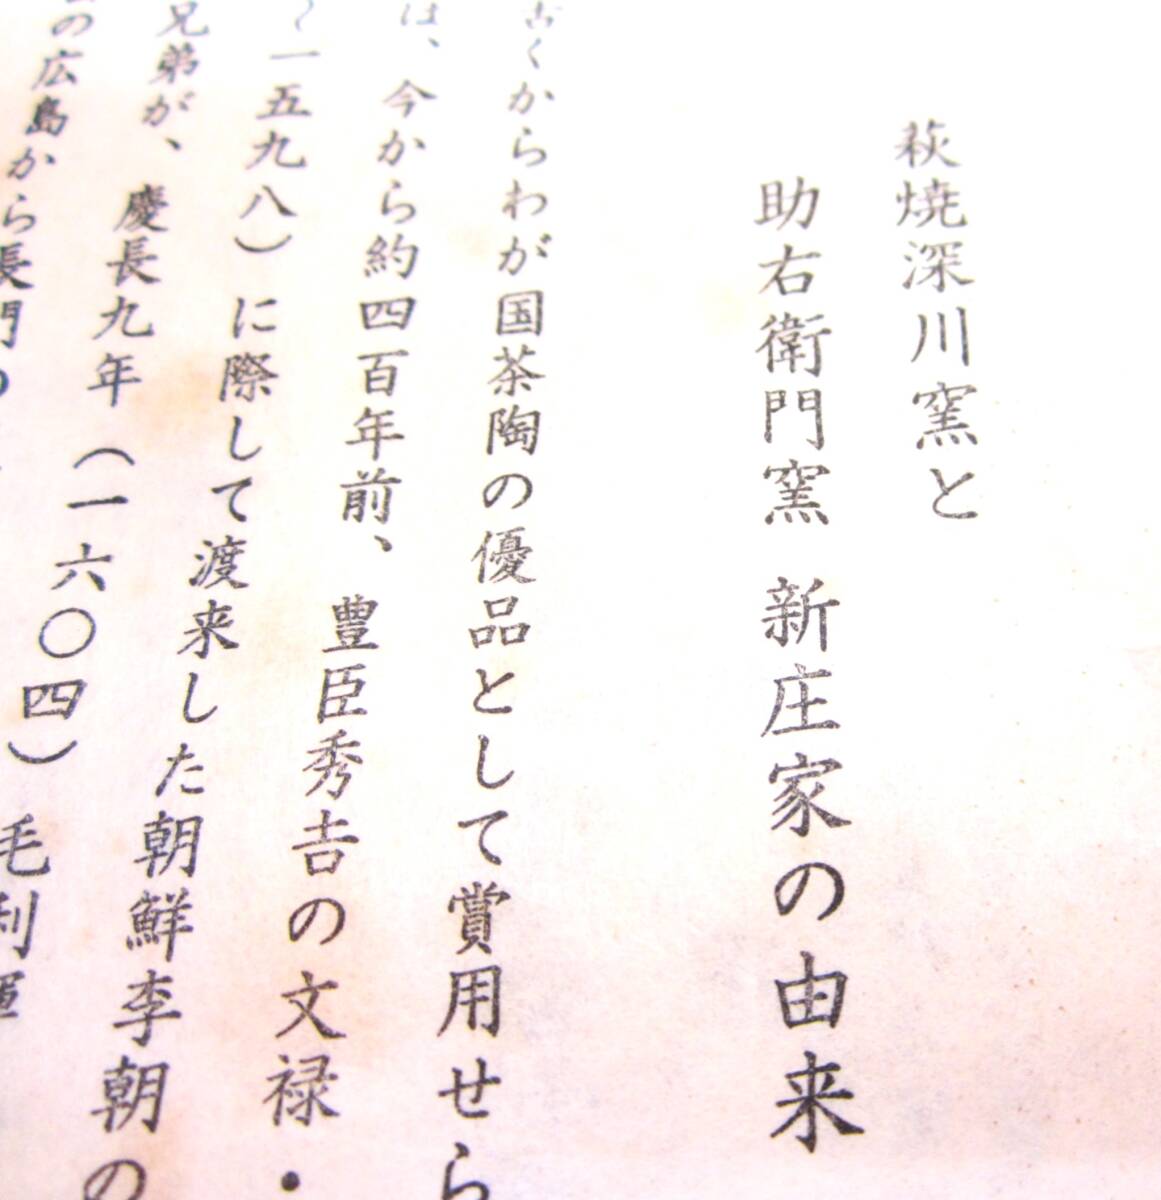 萩焼深川窯と
助右衛門窯 新庄家の由来
古くからわが国茶陶の優品として賞用せら
は、今から約四百年前、豊臣秀吉の文禄・
一五九八)に際して渡来した朝鮮李朝の
兄弟が、慶長九年(一六〇四)毛利
の広島から長門の